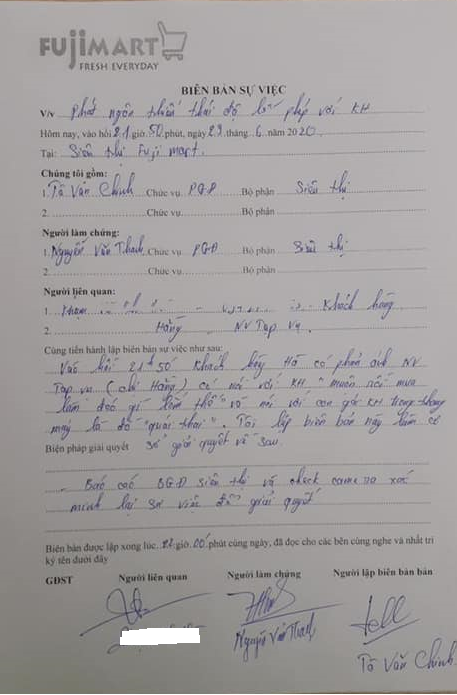 FUJIMART
FRESH EVERYDAY
BIÊN BẢN SỰ VIỆC
V/v Phát ngôn thiếu thái độ lễ phép với KH
Hôm nay, vào hồi 21 giờ 50 phút, ngày 29 tháng 6 năm 2020
Tại: Siêu thị Fuji mart.
Chúng tôi gồm:
1. Tô Văn Chinh Chức vụ PGĐ Bộ phận Siêu thị
2. Chức vụ Bộ phận
Người làm chứng:
1. Nguyễn Văn Thanh Chức vụ PGĐ Bộ phận Siêu thị
2. Chức vụ Bộ phận
Người liên quan:
1. Khách hàng
2. Hằng NV Tạp vụ.
Cùng tiến hành lập biên bản sự việc như sau:
Vào hồi 21h50 khách hàng có phản ánh NV
Tạp vụ (chị Hằng) có nói với KH "muộn rồi mua
làm đéo gì lắm thế" và nói với con gái KH trong
mày là đồ "quái thai". Tôi lập biên bản này làm cơ
Biện pháp giải quyết sở giải quyết về sau.
- Báo cáo BGĐ siêu thị và check camera xác
minh lại sự việc để giải quyết
Biên bản được lập xong lúc 22 giờ 00 phút cùng ngày, đã đọc cho các bên cùng nghe và nhất trí
ký tên dưới đây
GĐST Người liên quan Người làm chứng Người lập biên bản bản
Nguyễn Văn Thanh
Tô Văn Chinh